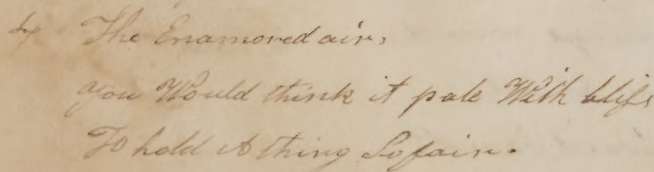 4 The Enamored air,
You Would think it pale With bliss
To hold A thing So fair.